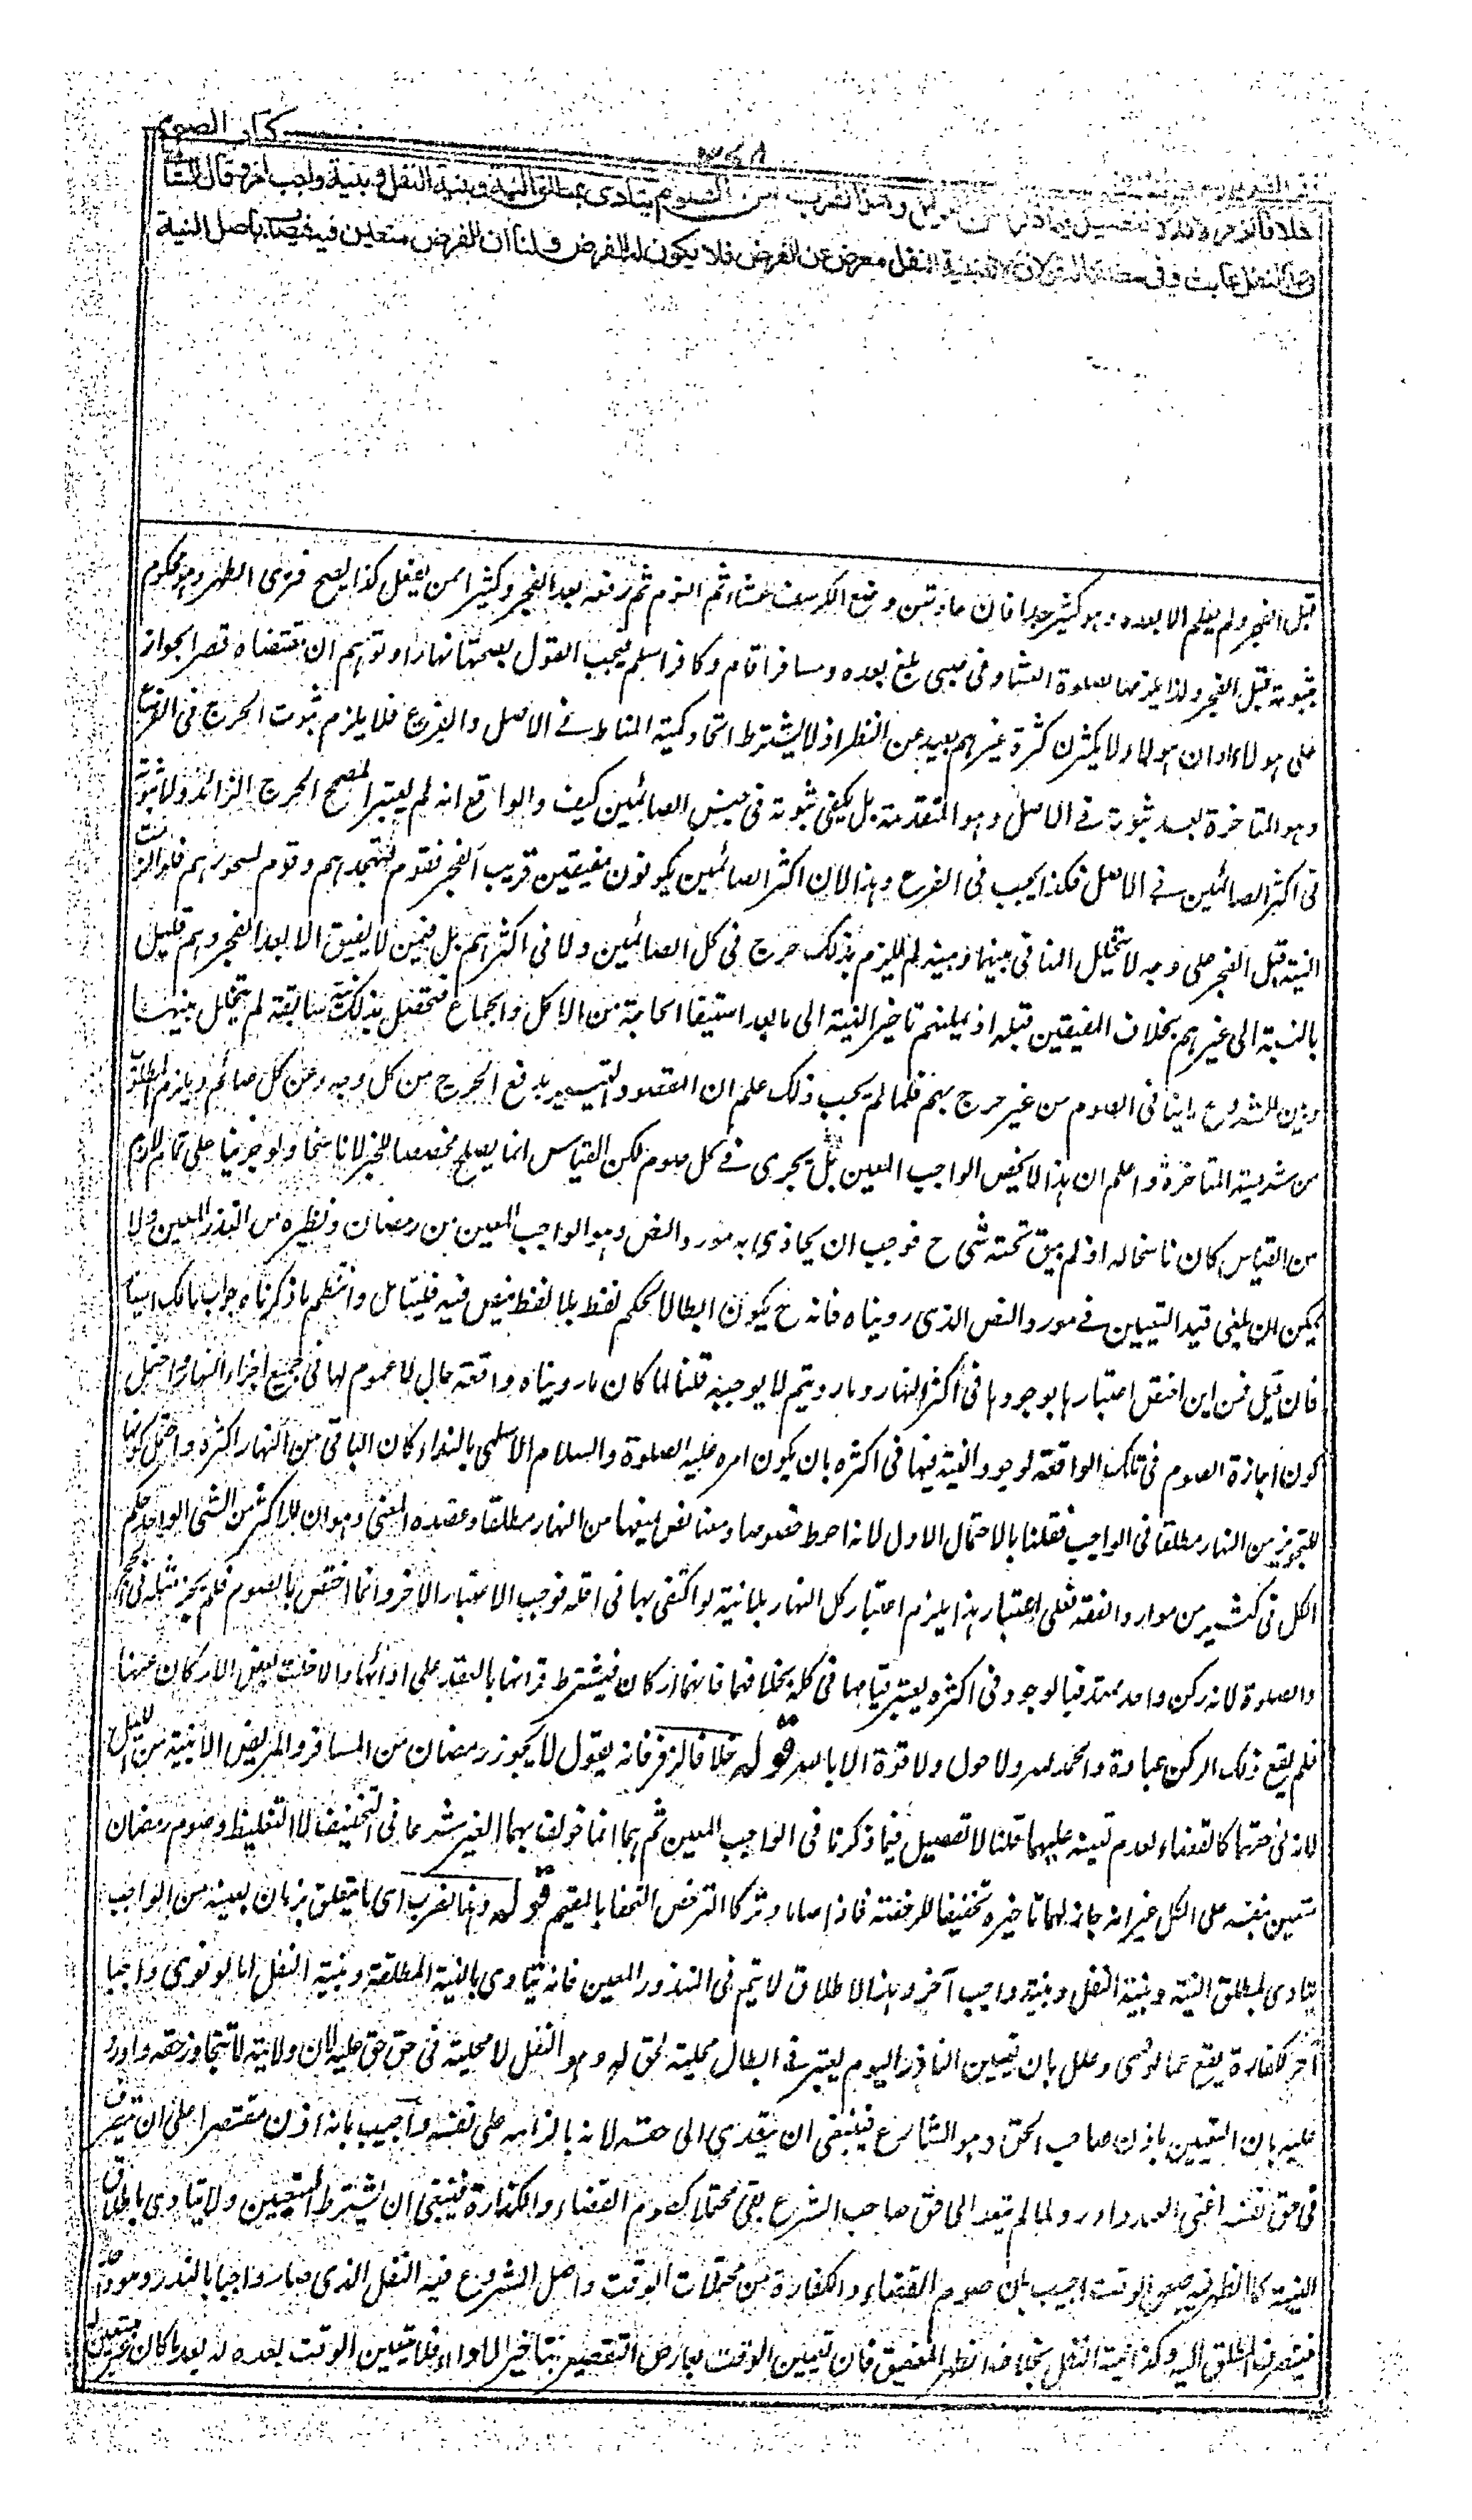 كتاب الصوم
خلافا لزفر لانه لا تفصيل فيما ذكرنا من الدليل وهذا الضرب من الصوم يتادى بمطلق النية وبنية النفل وبنية واجب اخر وقال الشافعي
في نية النفل عابث وفي مطلقها له قولان لانه بنية النفل معرض عن الفرض فلا يكون له الفرض ولنا ان الفرض متعين فيه فيصاب باصل النية
قبل الفجر ولم يعلم الا بعده وهو كثير جدا فان عادتهن وضع الكرسف عشاء ثم النوم ثم رفعه بعد الفجر وكثيرا ممن يفعل كذا يصبح فترى الطهر وهو محكوم
بثبوته قبل الفجر ولذا يلزمها بصلوة العشاء وفى صبى بلغ بعده ومسافر اقام وكافر اسلم فيجب القول بصحتها نهارا وتوهم ان مقتضاه قصر الجواز
على هولاء او ان هولاء لا يكثرن كثرة غيرهم بعيد عن النظر اذ لا يشترط اتحاد كمية المناط في الاصل والفرع فلا يلزم ثبوت الحرج فى الفرع
وهو المتاخرة بعد ثبوته في الاصل وهو المتقدمة بل يكفى ثبوته فى جنس الصائمين كيف والواقع انه لم يعتبر المصحح الحرج الزائد ولا ثبوته
فى اكثر الصائمين في الاصل فكذا يجب فى الفرع وهذا لان اكثر الصائمين يكونون مفيقين قريب الفجر فقوم لتهجدهم وقوم لسحورهم فلو الزمت
النية قبل الفجر على وجه لا يتخلل المنافى بينها وبينه لم يلزم بذلك حرج فى كل الصائمين ولا فى اكثرهم بل فيمن لا يفيق الا بعد الفجر وهم قليل
بالنسبة الى غيرهم بخلاف المفيقين قبله اذ يمكنهم تاخير النية الى ما بعد استيفاء الحاجة من الاكل والجماع فتحصل بذلك نية سابقة لم يتخلل بينها
وبين الشروع ما ينافى الصوم من غير حرج بهم فلما لم يجب ذلك علم ان المقصود التيسير بدفع الحرج من كل وجه وعن كل صائم ويلزم المطلوب
من شرعية المتاخرة واعلم ان هذا لا يخص الواجب المعين بل يجرى في كل صوم لكن القياس انما يصلح مخصصا للخبر لا ناسخا ولو جرينا على تمام لازم
من القياس كان ناسخا له اذ لم يبق تحته شئ ح فوجب ان يحاذى به مورد النص وهو الواجب المعين من رمضان ونظيره من النذر المعين ولا
يمكن ان يلغى قيد التعيين في مورد النص الذى رويناه فانه ح يكون ابطالا لحكم لفظ بلا لفظ ينص فيه فليتامل وانتظم ما ذكرناه جواب مالك ايضا
فان قيل فمن اين اختص اعتبارها بوجودها فى اكثر النهار وما رويتم لا يوجبه قلنا لما كان ما رويناه واقعة حال لا عموم لها فى جميع اجزاء النهار واحتمل
كون اجازة الصوم فى تلك الواقعة لوجود النية فيها فى اكثره بان يكون امره عليه الصلوة والسلام الاسلمى بالنداء كان الباقى من النهار اكثره واحتمل كونها
للتجويز من النهار مطلقا فى الواجب فقلنا بالاحتمال الاول لانه احوط خصوصا ومعنا نص يمنعها من النهار مطلقا وعضده المعنى وهو ان للاكثر من الشئ الواحد حكم
الكل فى كثير من موارد الفقه فعلى اعتبار هذا يلزم اعتبار كل النهار بلانية لو اكتفى بها فى اقله فوجب الاعتبار الاخر وانما اختص بالصوم فلم يجز مثله فى الحج
والصلوة لانه ركن واحد ممتد فبالوجود فى اكثره يعتبر قيامها فى كله بخلافهما فانهما اركان فيشترط قرانها بالعقد على ادائها والا خلت بعض الاركان عنها
فلم يقع ذلك الركن عبادة والحمد لله ولا حول ولا قوة الا بالله قوله خلافا لزفر فانه يقول لا يجوز رمضان من المسافر والمريض الا بنية من الليل
لانه فى حقهما كالقضاء لعدم تعينه عليهما قلنا لا تفصيل فيما ذكرنا فى الواجب المعين ثم هما انما خولف بهما الغير شرعا فى التخفيف لا التغليظ وصوم رمضان
متعين بنفسه على الكل غير انه جاز لهما تاخيره تخفيفا للرخصة فاذا صاما وتركا الترخص التحقا بالمقيم قوله وهذا الضرب اى ما يتعلق بزمان بعينه من الواجب
يتادى بمطلق النية وبنية النفل وبنية واجب آخر وهذا الاطلاق لا يتم فى المنذور المعين فانه يتادى بالنية المطلقة وبنية النفل اما لو نوى واجبا
آخر كفارة يقع عما نوى وعلل بان تعيين الناذر اليوم يعتبر في ابطال محلية لحق له وهو النفل لا محلية فى حق حق عليه لان ولايته لا تتجاوز حقه واورد
عليه بان التعيين باذن صاحب الحق وهو الشارع فينبغى ان يتعدى الى حقه لانه بالزامه على نفسه واجيب بانه اذن مقتصرا على ان يتصرف
فى حق نفسه اعنى العبد واورد ولما لم يتعد الى حق صاحب الشرع بقى محتملا لصوم القضاء والكفارة فينبغى ان يشترط التعيين ولا يتادى باطلاق
النية كالظهر فى ضيق الوقت اجيب بان صوم القضاء والكفارة من محتملات الوقت واصل المشروع فيه النفل الذى صار واجبا بالنذر وهو واحد
فينصرف المطلق اليه وكذا نية النفل بخلاف الظهر المضيق فان تعيين الوقت يعارض التقصير بتاخير الاداء فلا يتعين الوقت بعده له بعد ما كان غير متعين له